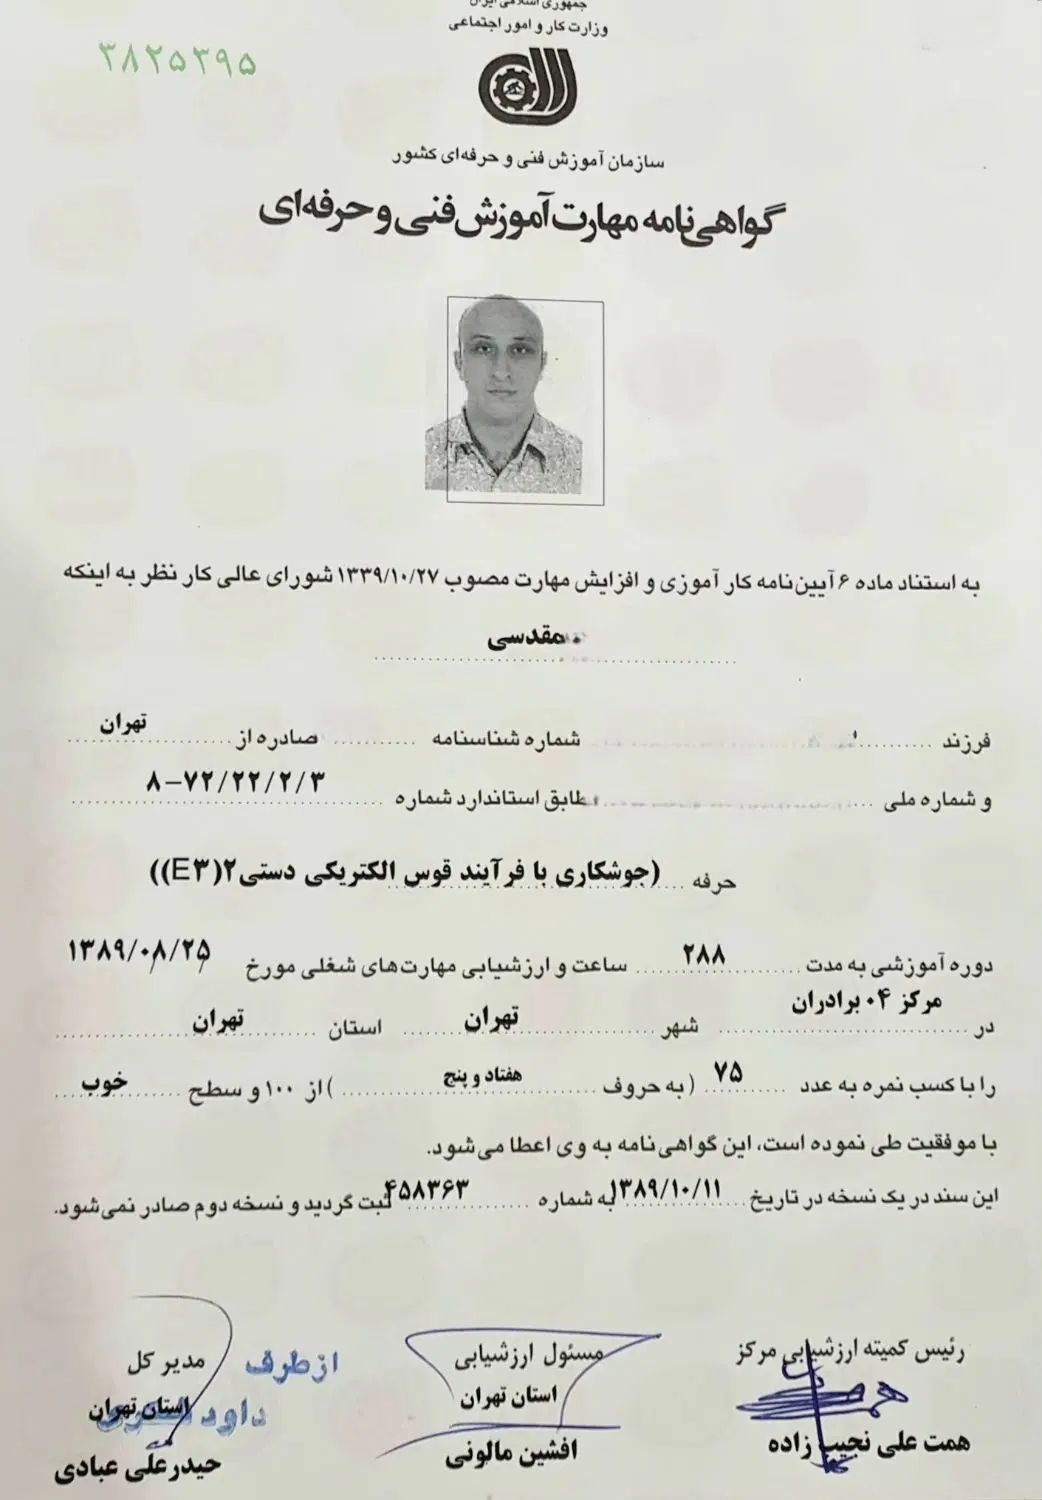 جمهوری اسلامی ایران
وزارت کار و امور اجتماعی
۳۸۲۵۳۹۵
سازمان آموزش فنی و حرفه‌ای کشور
گواهی‌نامه مهارت آموزش فنی و حرفه‌ای
به استناد ماده ۶ آیین‌نامه کار آموزی و افزایش مهارت مصوب ۱۳۳۹/۱۰/۲۷ شورای عالی کار نظر به اینکه
مقدسی
فرزند شماره شناسنامه صادره از تهران
و شماره ملی طابق استاندارد شماره ۸-۷۲/۲۲/۲/۳
حرفه (جوشکاری با فرآیند قوس الکتریکی دستی۲(E۳))
دوره آموزشی به مدت ۲۸۸ ساعت و ارزشیابی مهارت‌های شغلی مورخ ۱۳۸۹/۰۸/۲۵
در مرکز ۰۴ برادران شهر تهران استان تهران
را با کسب نمره به عدد ۷۵ (به حروف هفتاد و پنج) از ۱۰۰ و سطح خوب
با موفقیت طی نموده است، این گواهی‌نامه به وی اعطا می‌شود.
این سند در یک نسخه در تاریخ ۱۳۸۹/۱۰/۱۱ به شماره ۴۵۸۳۶۳ ثبت گردید و نسخه دوم صادر نمی‌شود.
رئیس کمیته ارزشیابی مرکز
همت علی نجیب زاده
مسئول ارزشیابی
استان تهران
افشین مالونی
از طرف
داود
مدیر کل
استان تهران
حیدرعلی عبادی